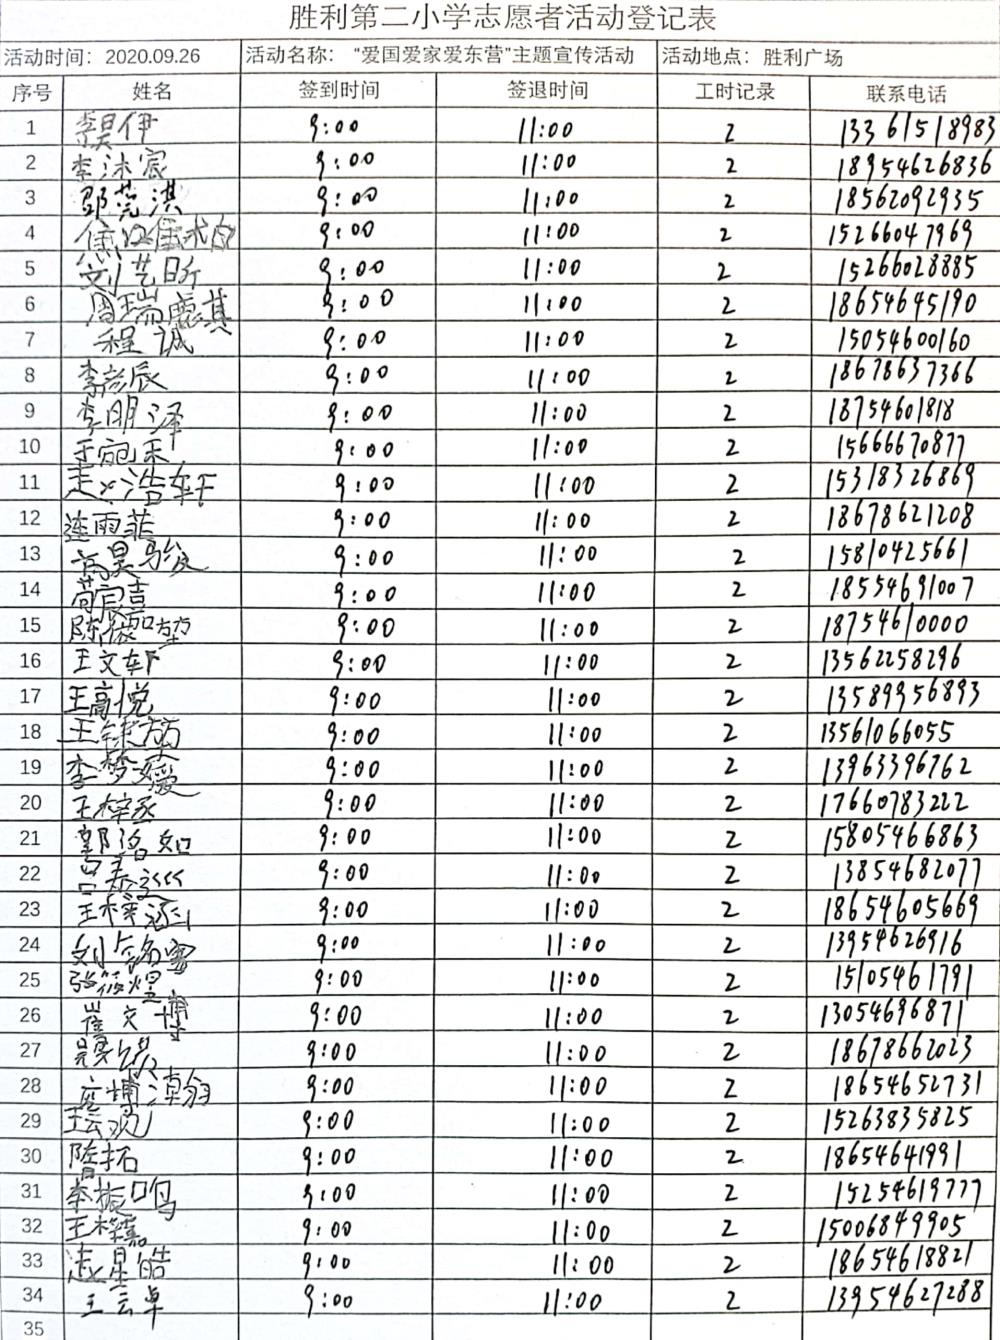 胜利第二小学志愿者活动登记表
活动时间：2020.09.26 活动名称：“爱国爱家爱东营”主题宣传活动 活动地点：胜利广场
序号 姓名 签到时间 签退时间 工时记录 联系电话
1 李昊伊 9:00 11:00 2 13361518983
2 李沐宸 9:00 11:00 2 18954626836
3 邵芫淇 9:00 11:00 2 18562092935
4 9:00 11:00 2 15266047969
5 刘艺昕 9:00 11:00 2 15266028885
6 周瑞麒 9:00 11:00 2 18654645190
7 程诚 9:00 11:00 2 15054600160
8 李彦辰 9:00 11:00 2 18678637366
9 李明泽 9:00 11:00 2 18754601818
10 于宛禾 9:00 11:00 2 15666670877
11 赵浩轩 9:00 11:00 2 15318326869
12 连雨菲 9:00 11:00 2 18678621208
13 高昊骏 9:00 11:00 2 15810425661
14 苟宸喜 9:00 11:00 2 18554691007
15 9:00 11:00 2 18754610000
16 王文轩 9:00 11:00 2 13562258296
17 王高悦 9:00 11:00 2 13589956893
18 9:00 11:00 2 13561066055
19 李梦媛 9:00 11:00 2 13963396762
20 王梓丞 9:00 11:00 2 17660783222
21 郭洺如 9:00 11:00 2 15805466863
22 9:00 11:00 2 13854682077
23 王梓涵 9:00 11:00 2 18654605669
24 9:00 11:00 2 13954626916
25 张筱煜 9:00 11:00 2 15105461791
26 崔文博 9:00 11:00 2 13054696871
27 9:00 11:00 2 18678662023
28 庞博瀚 9:00 11:00 2 18654652731
29 王云观 9:00 11:00 2 15263835825
30 9:00 11:00 2 18654641991
31 李振鸣 9:00 11:00 2 15254619777
32 王梓嘉 9:00 11:00 2 15006849905
33 赵星皓 9:00 11:00 2 18654618821
34 王云卓 9:00 11:00 2 13954627288
35